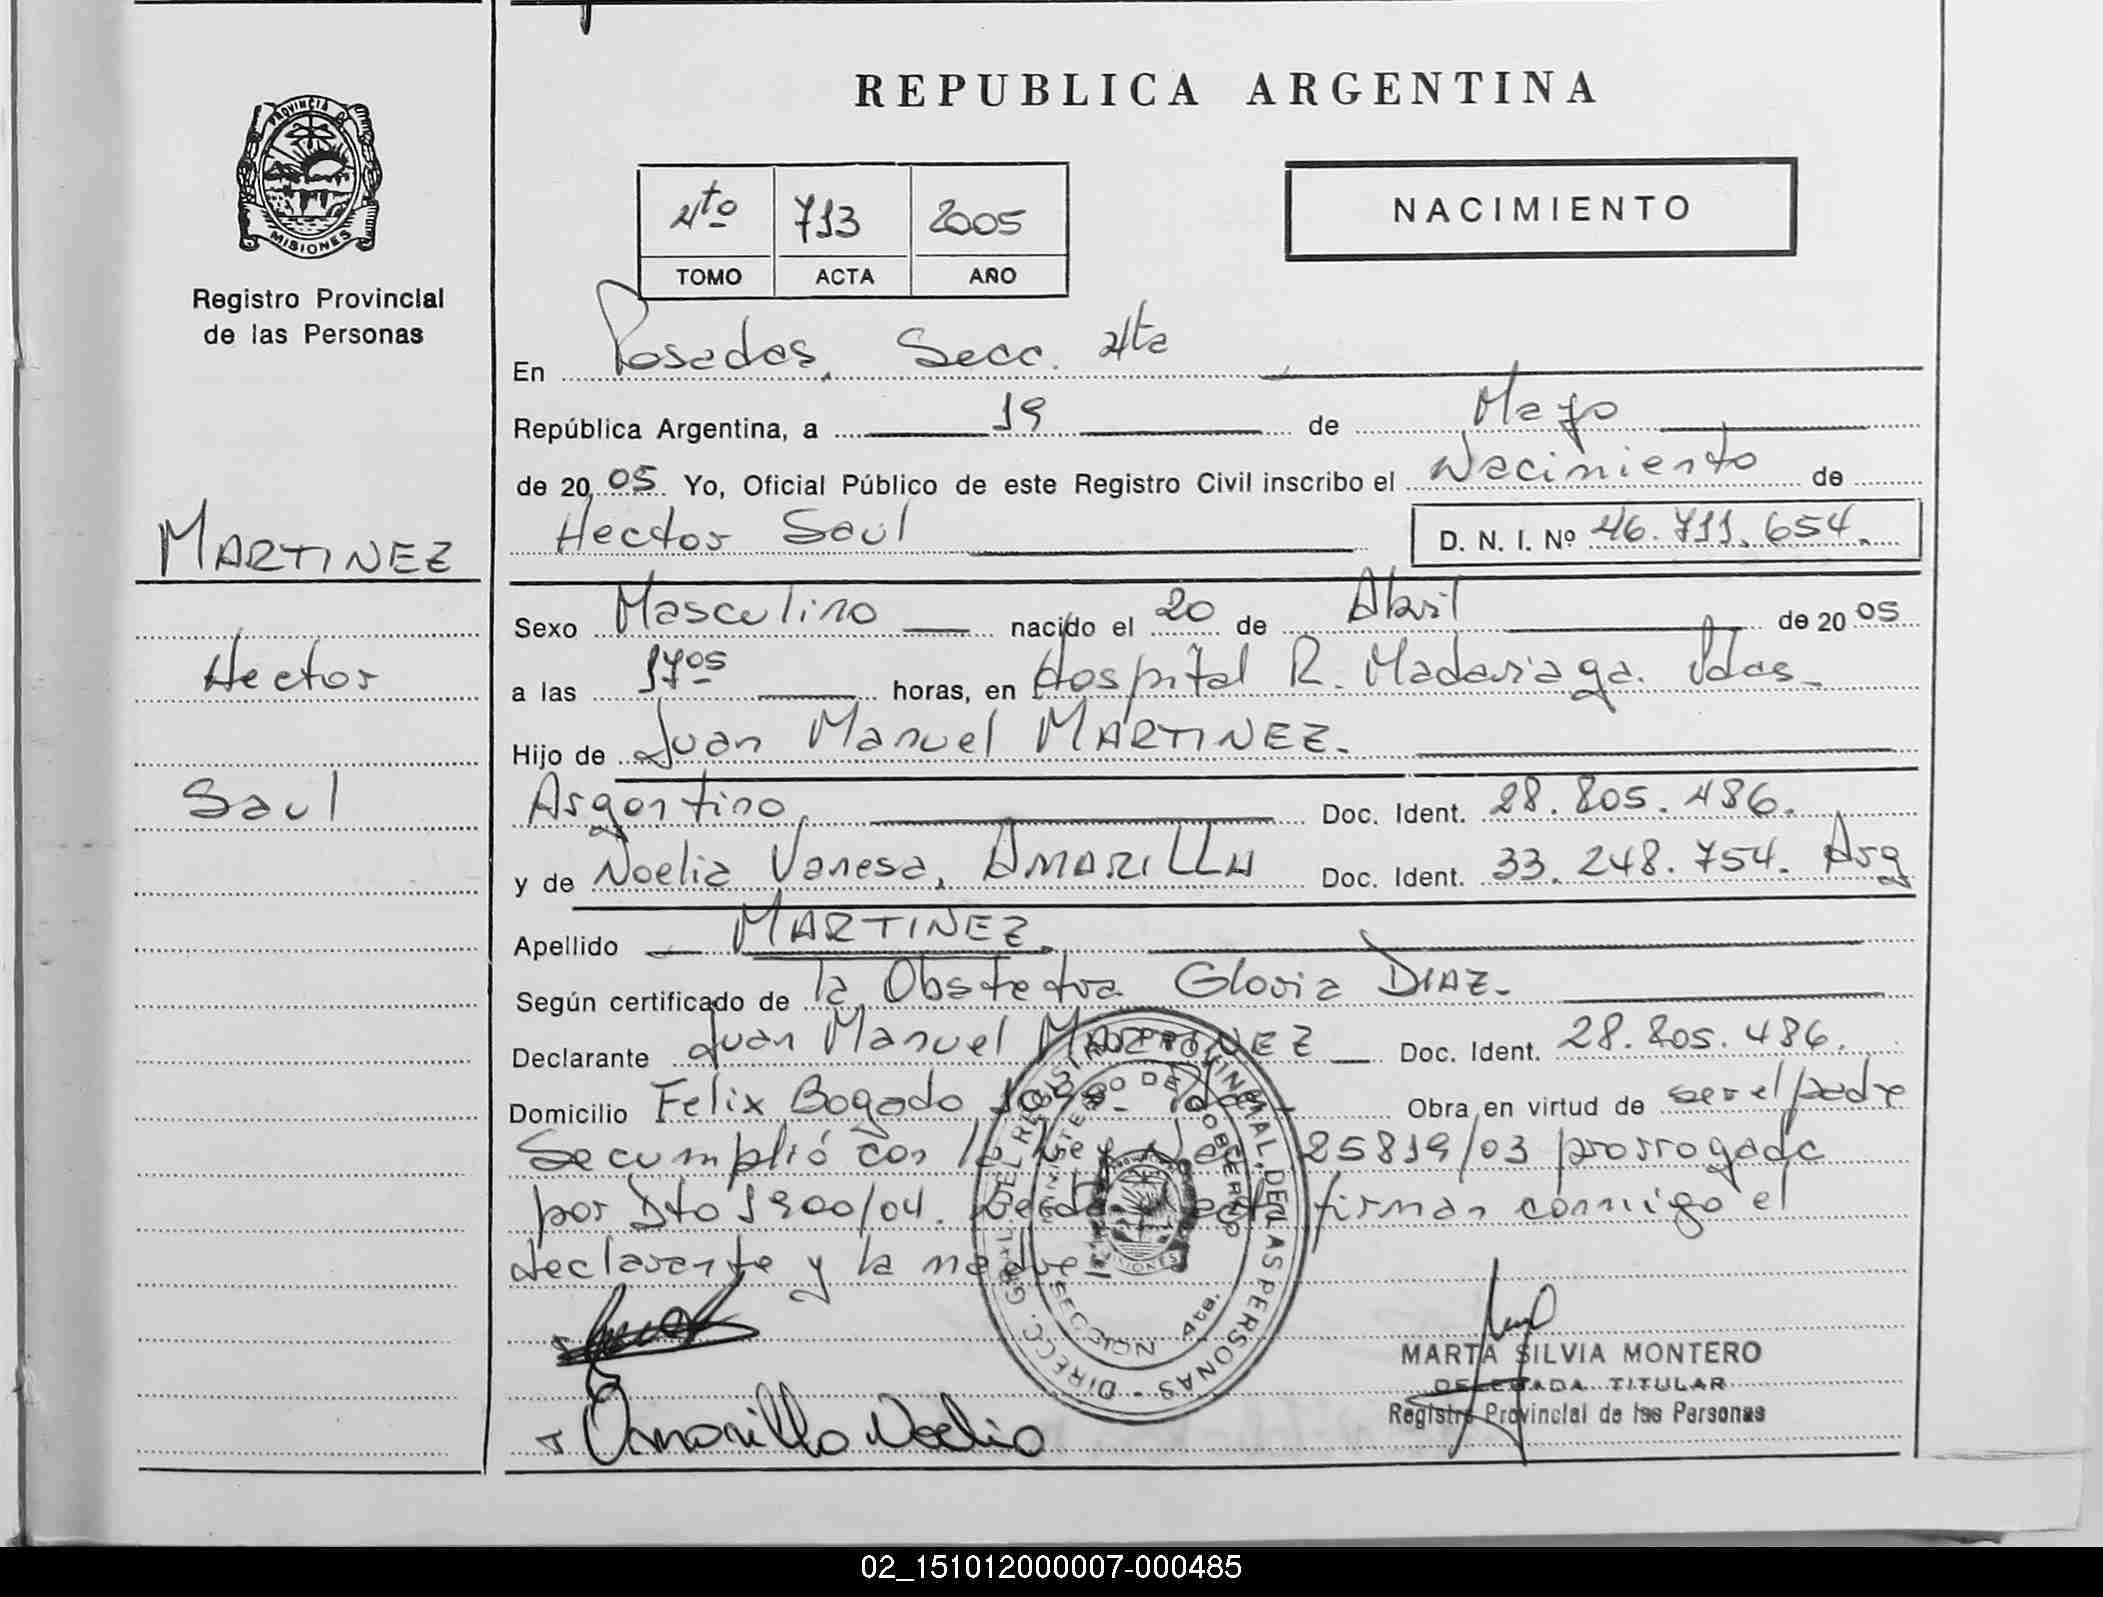 REPUBLICA ARGENTINA
PROVINCIA DE
MISIONES
Registro Provincial
de las Personas
4to 713 2005
TOMO ACTA AÑO
NACIMIENTO
En Posadas, Secc. 4ta
República Argentina, a 19 de Mayo
de 20 05 Yo, Oficial Público de este Registro Civil inscribo el Nacimiento de
Hector Saul D. N. I. Nº 46.711.654.
MARTINEZ
Hector
Saul
Sexo Masculino nacido el 20 de Abril de 20 05
a las 17 05 horas, en Hospital R. Madariaga. Pdas.
Hijo de Juan Manuel MARTINEZ.
Argentino Doc. Ident. 28.805.486.
y de Noelia Vanesa, AMARILLA Doc. Ident. 33.248.754. Arg
Apellido MARTINEZ.
Según certificado de la Obstetra Gloria DIAZ.
Declarante Juan Manuel MARTINEZ Doc. Ident. 28.805.486.
Domicilio Felix Bogado Obra en virtud de ser el padre
Se cumplió con la Ley 25819/03 prorrogada
por Dto 1900/04. firman conmigo el
declarante y la madre
DIRECC. GRAL. DEL REGISTRO PROVINCIAL DE LAS PERSONAS
MINISTERIO DE GOBIERNO
SECCION 4ta.
Amarilla Noelia
MARTA SILVIA MONTERO
DELEGADA TITULAR
Registro Provincial de las Personas
02_151012000007-000485